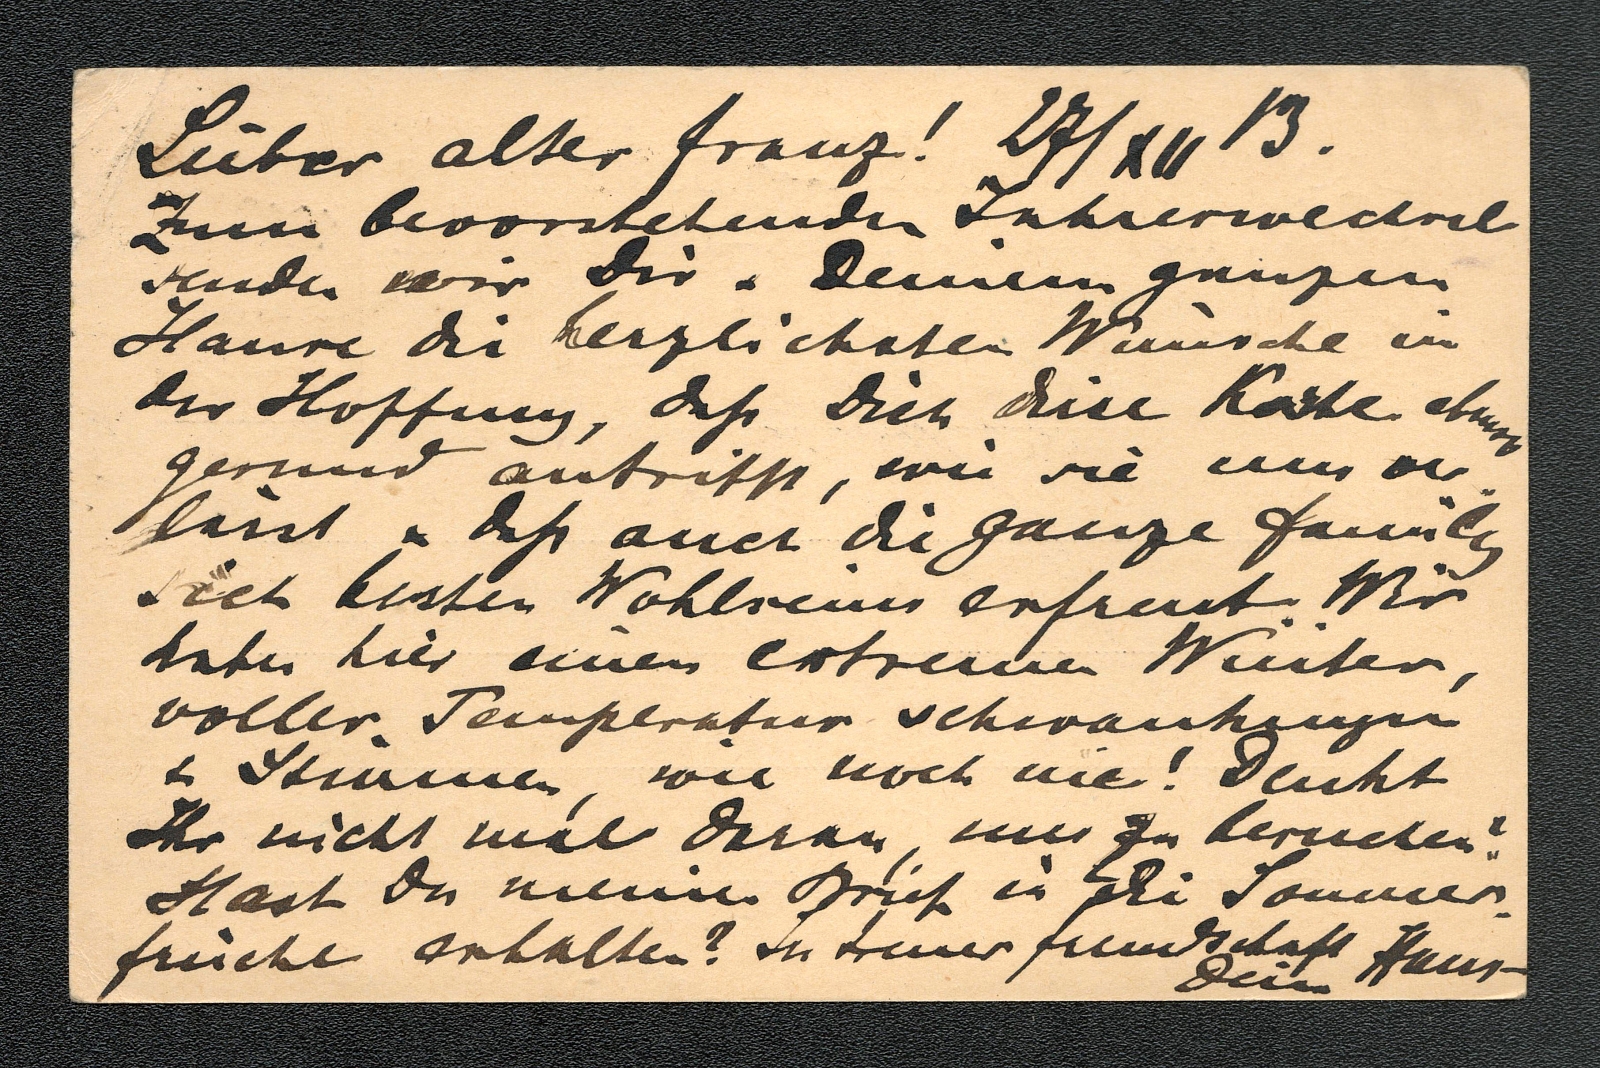 Lieber alter Franz! 27/XII 13.
Zum bevorstehenden Jahreswechsel
senden wir Dir & Deinem ganzen
Hause die herzlichsten Wünsche in
der Hoffnung, daß Dich diese Karte ebenso
gesund antrifft, wie sie uns ver-
lässt & daß auch die ganze Family
sich besten Wohlseins erfreut. Wir
haben hier einen extremen Winter,
voller Temperatur schwankungen
& Stürmen, wie noch nie! Denkt
Ihr nicht mal daran, uns zu besuchen?
Hast Du meinen Brief in die Sommer-
frische erhalten? In treuer Freundschaft
Dein Hans